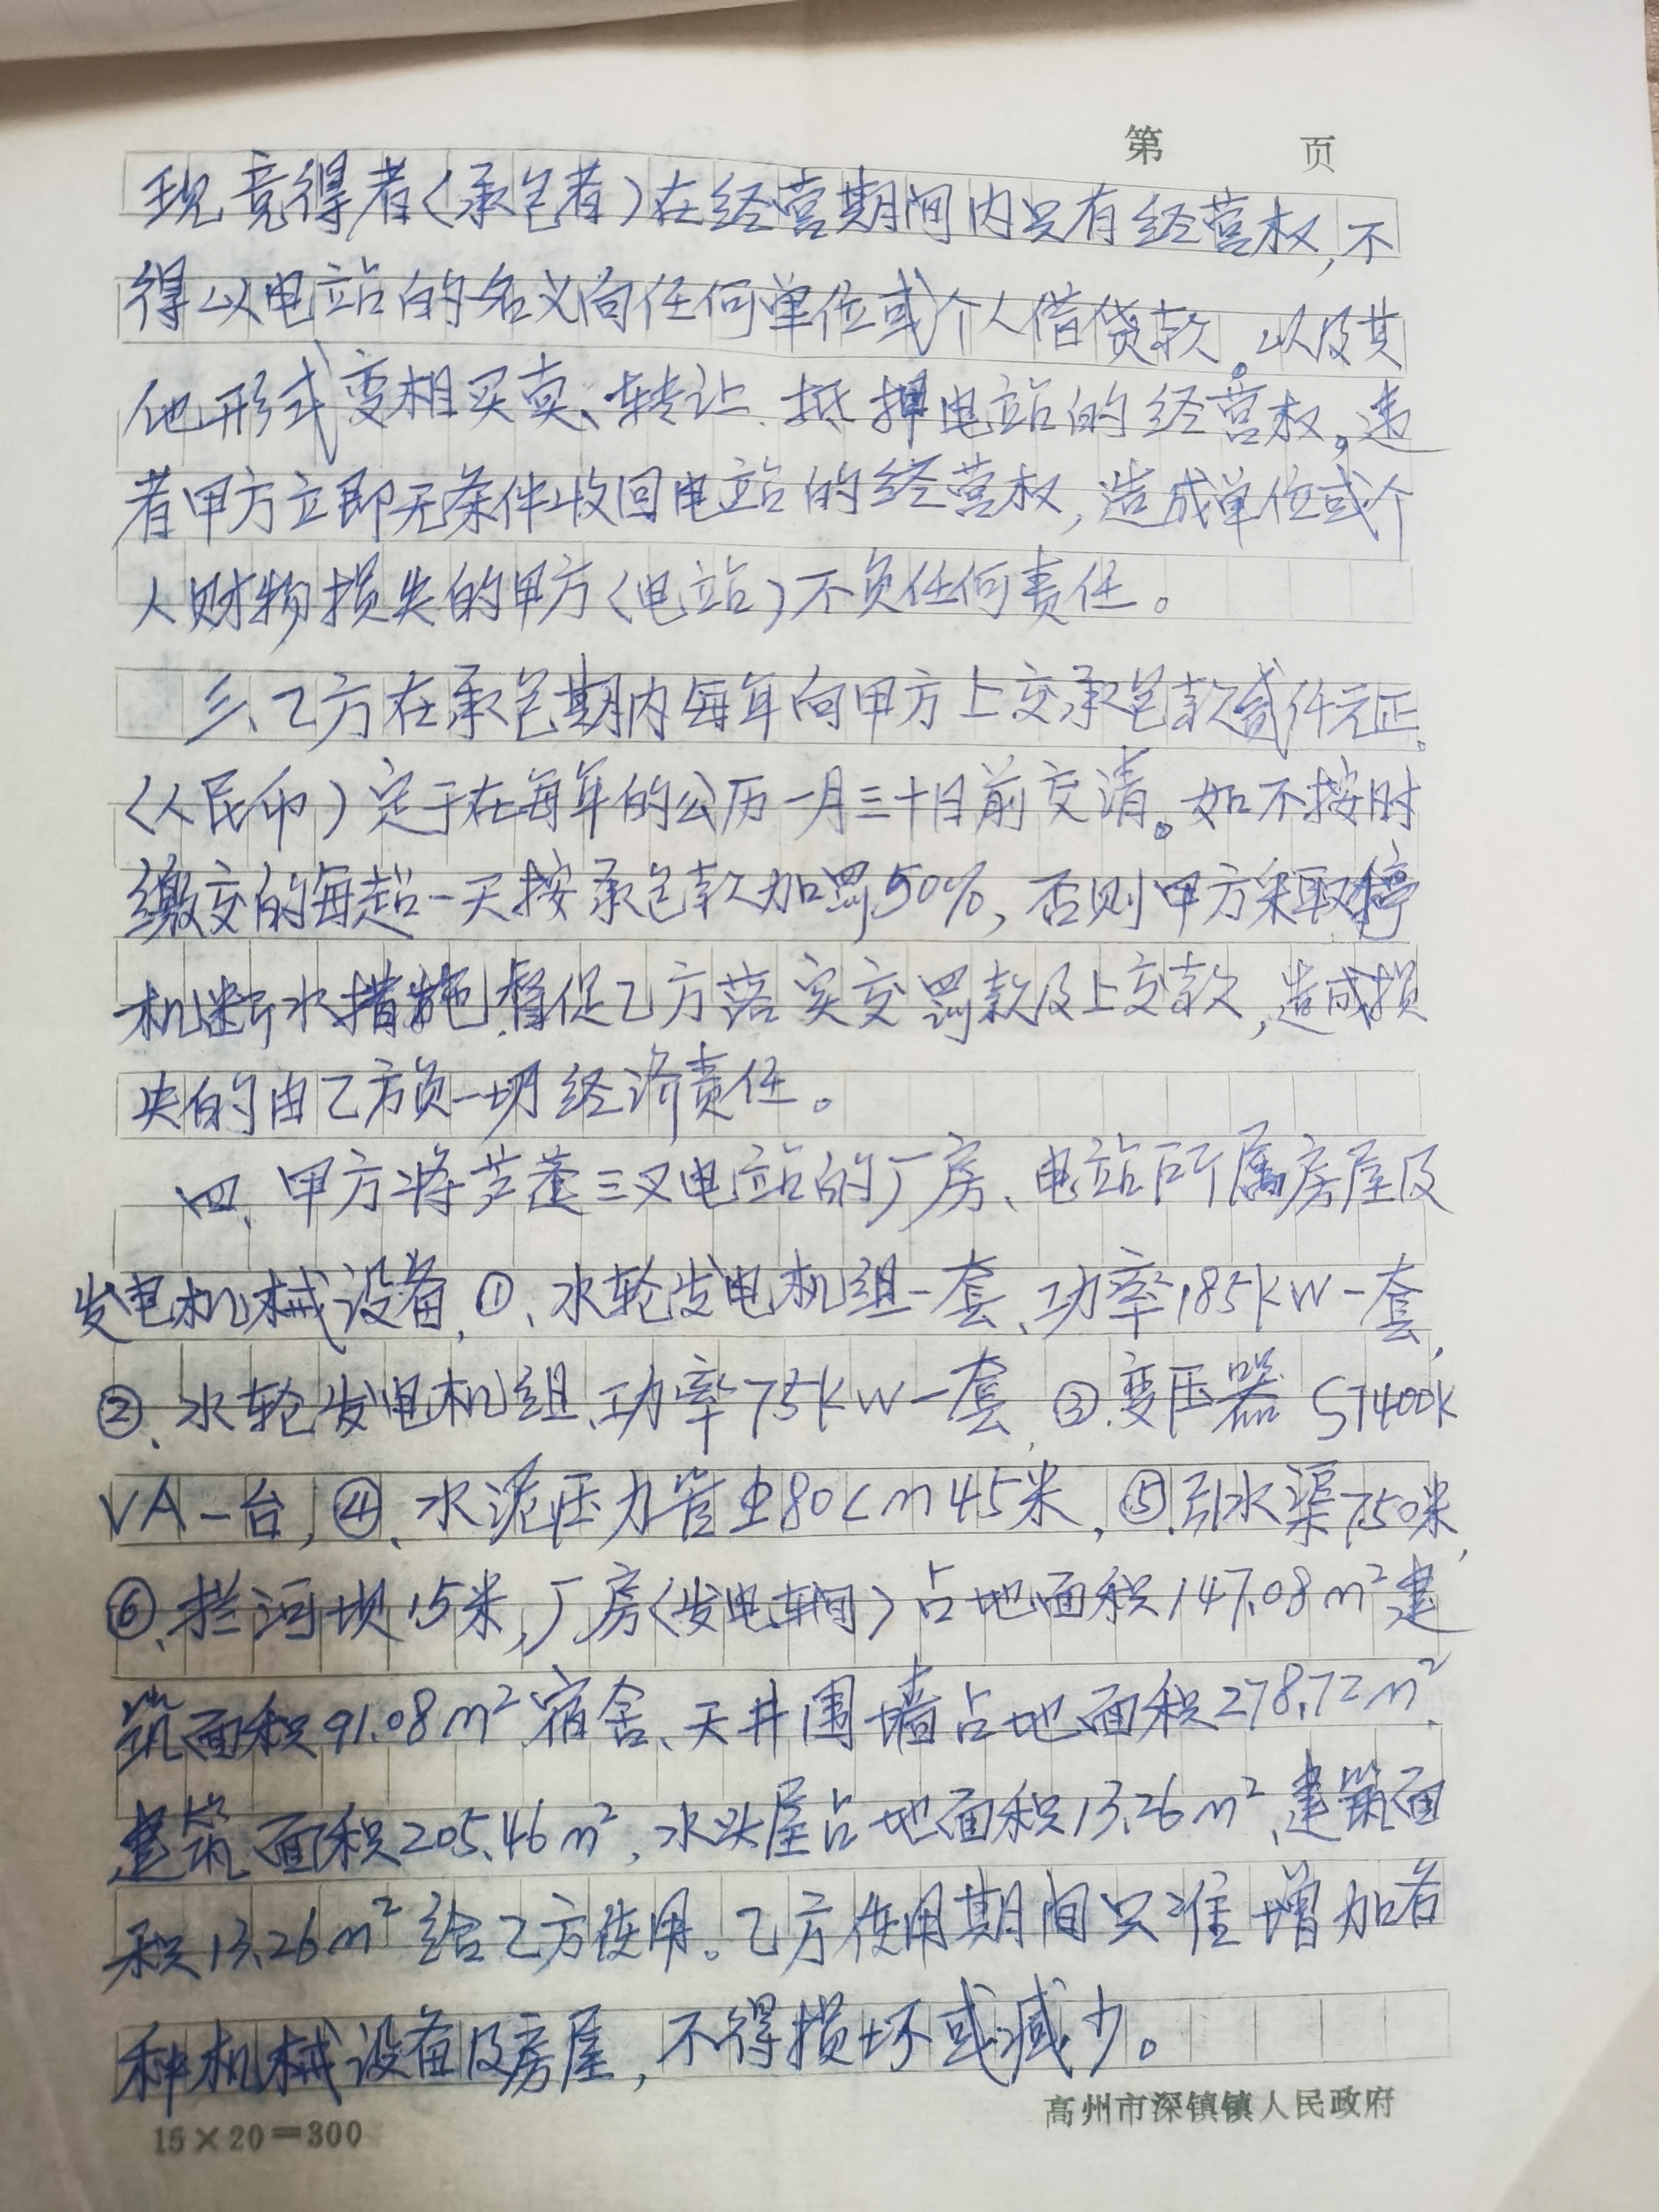 第 页
现竞得者(承包者)在经营期间内只有经营权,不
得以电站的名义向任何单位或个人借贷款。以及其
他形式变相买卖、转让、抵押电站的经营权。违
者甲方立即无条件收回电站的经营权,造成单位或个
人财物损失的甲方(电站)不负任何责任。
三、乙方在承包期内每年向甲方上交承包款贰仟元正、
(人民币)定于在每年的公历一月三十日前交清。如不按时
缴交的每超一天按承包款加罚50%,否则甲方采取停
机断水措施,督促乙方落实交罚款及上交款,造成损
失的由乙方负一切经济责任。
四、甲方将芦莲三叉电站的厂房、电站所属房屋及
发电机械设备,①、水轮发电机组一套、功率185KW一套,
②、水轮发电机组、功率75KW一套,③、变压器S7400K
VA一台,④、水泥压力管80cm45米,⑤、引水渠750米,
⑥、拦河坝15米,厂房(发电车间)占地面积147.08m²建
筑面积91.08m²宿舍、天井围墙占地面积278.72m²、
建筑面积205.46m²,水头屋占地面积13.26m²、建筑面
积13.26m²给乙方使用。乙方使用期间只准增加各
种机械设备及房屋,不得损坏或减少。
15×20=300
高州市深镇镇人民政府